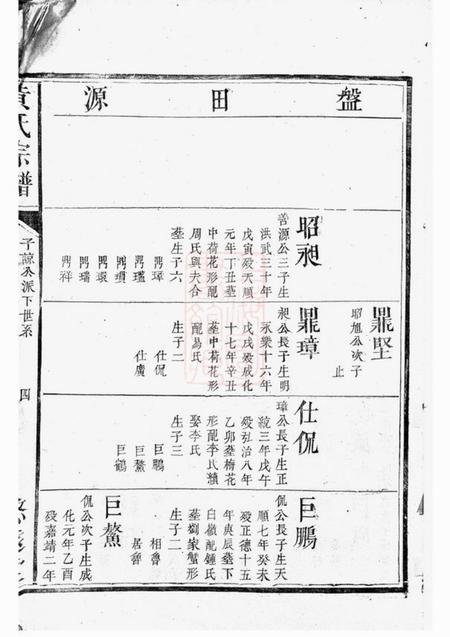 盤田源
鼎堅
昭旭公次子
止
昭昶
善源公三子生
洪武三十年
戊寅歿天順
元年丁丑塟
中荷花形配
周氏與夫合
塟生子六
鼎璋
鼎瓆
鼎環
鼎瑞
鼎祥
鼎璋
昶公長子生明
永樂十六年
戊戌歿成化
十七年辛丑
塟中荷花形
配易氏
生子二
仕侃
仕廣
仕侃
璋公長子生正
統三年戊午
歿弘治八年
乙卯塟梅花
形配李氏續
娶李氏
生子三
巨鵬
巨鰲
巨鶴
巨鵬
侃公長子生天
順七年癸未
歿正德十五
年庚辰塟下
白嶺配鍾氏
塟劉家蟹形
生子二
相魯
居魯
巨鰲
侃公次子生成
化元年乙酉
歿嘉靖二年
黃氏宗譜
子諒公派下世系
四